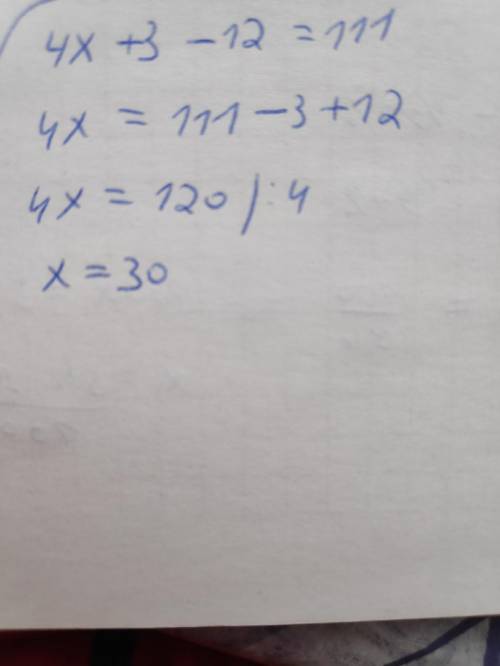 4x +3 -12 = 111
4x = 111 - 3 + 12
4x = 120 /: 4
x = 30